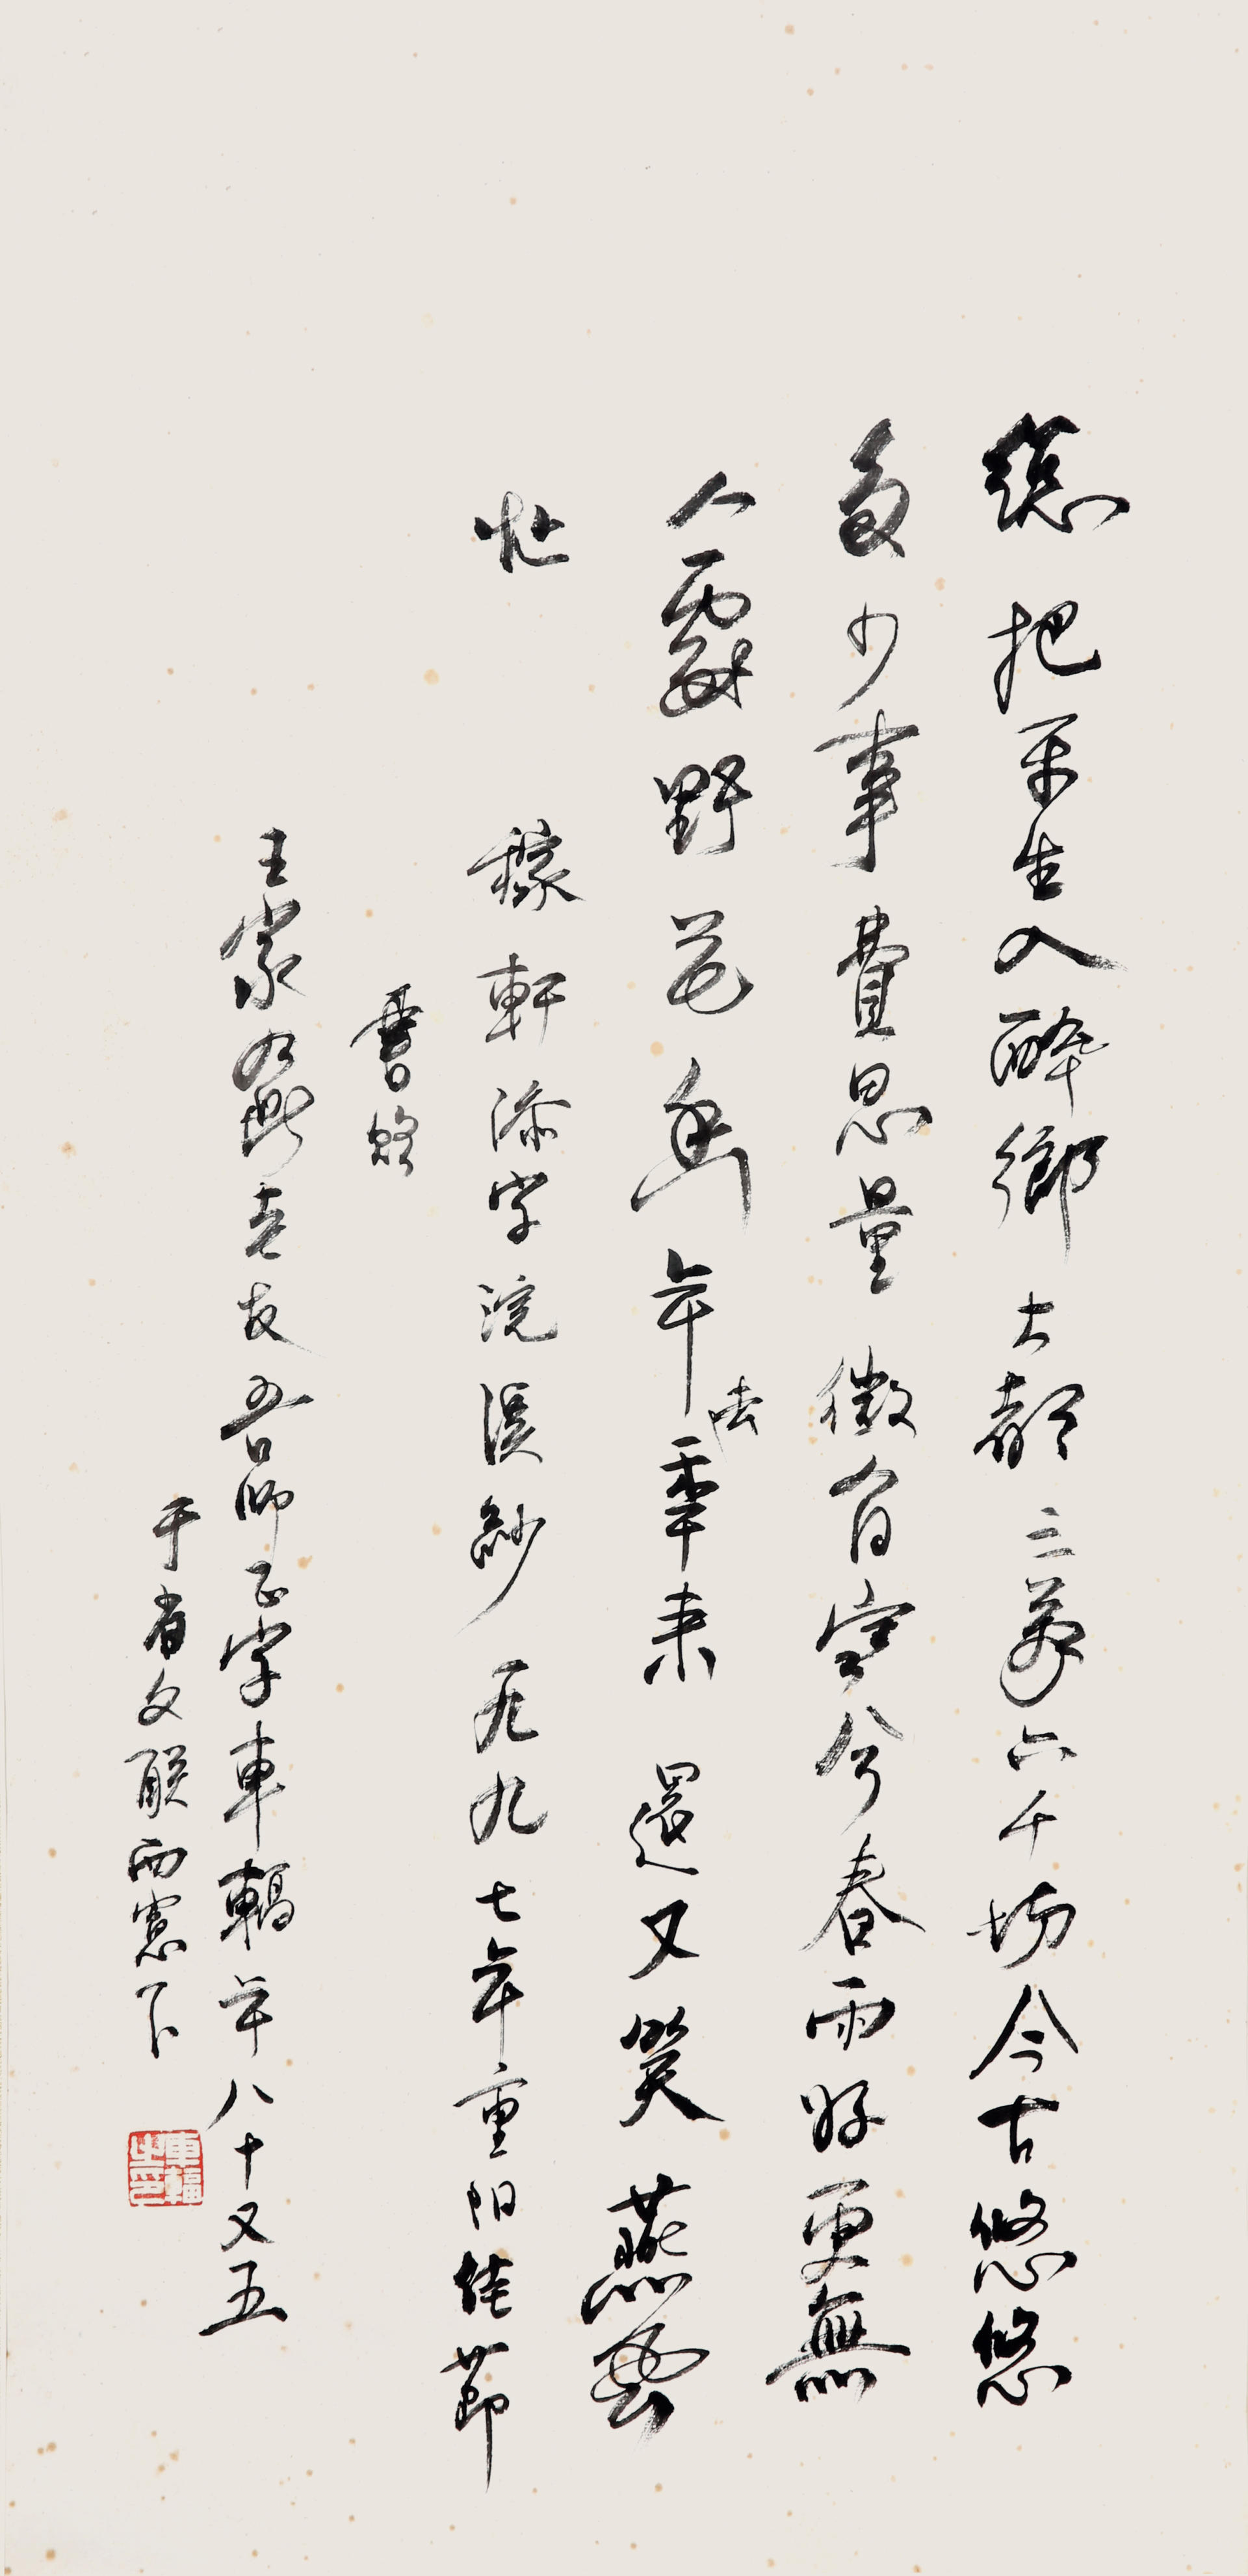 總把平生入醉鄉大都三萬六千場今古悠悠
多少事費思量微有寒兮春雨好更無
人處野花香年去秊來還又笑燕飛
忙 稼軒添字浣溪紗 一九九七年重陽佳節
書
王家老友吾師正字車輻年八十又五
于省文聯西窗下
車輻之印